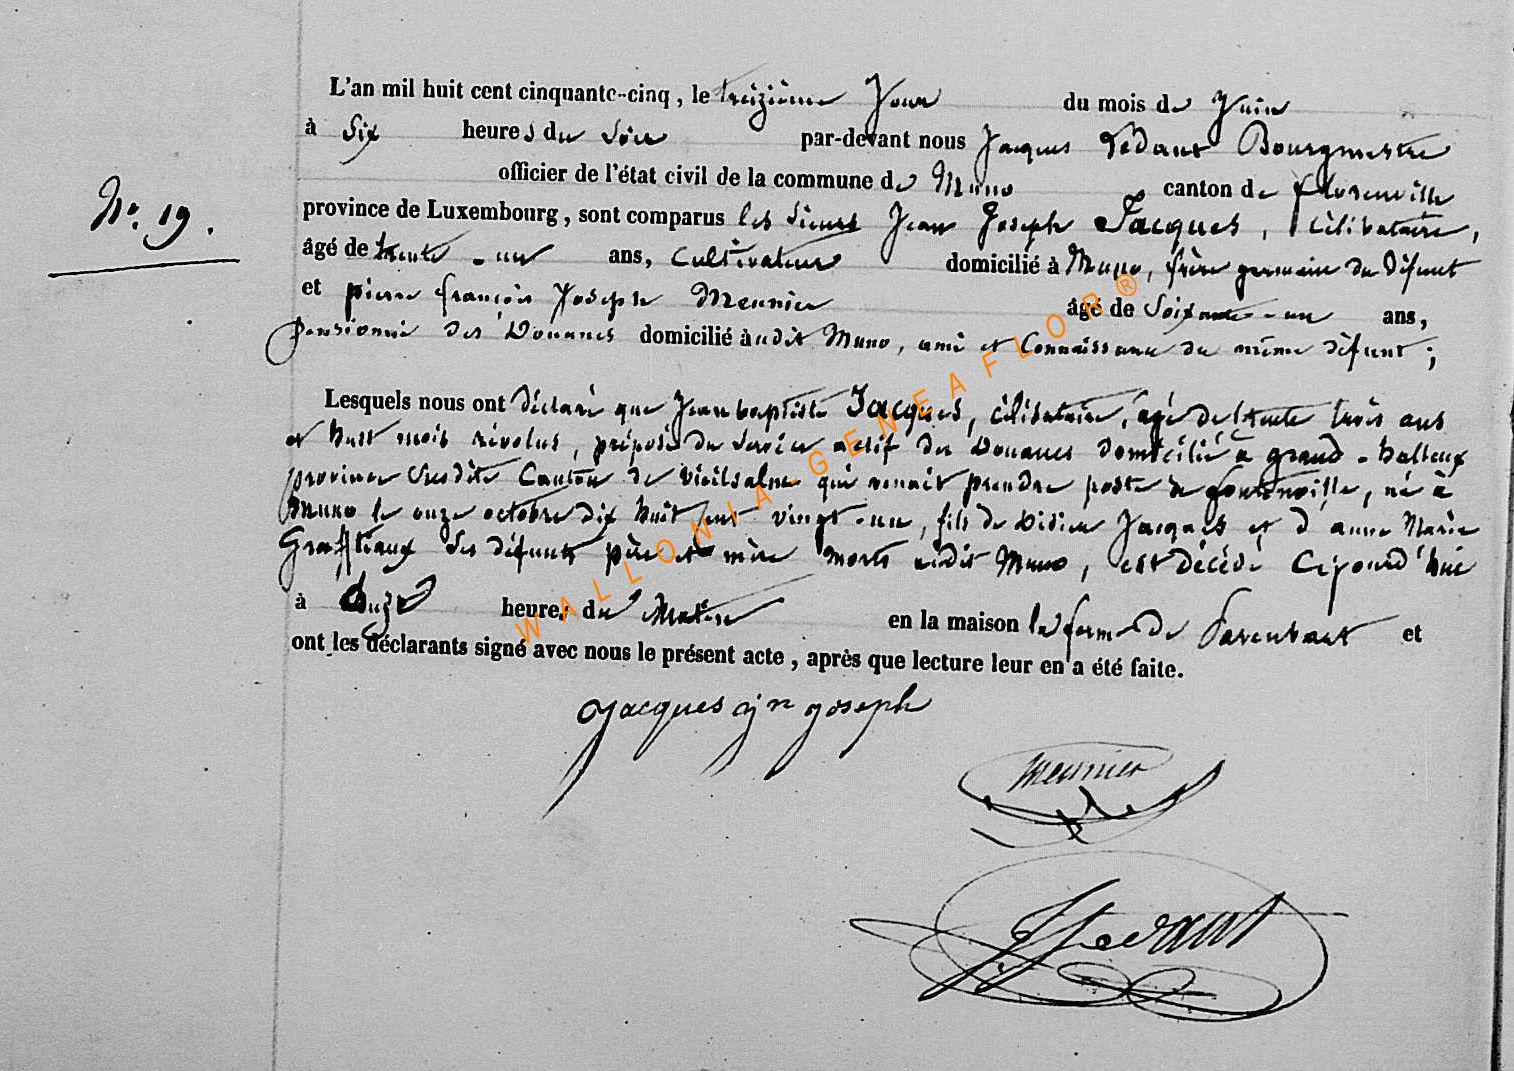 L'an mil huit cent cinquante-cinq, le treizième Jour du mois de Juin
à Six heures du Soir par-devant nous Jacques Ledant Bourgmestre
officier de l'état civil de la commune de Muno canton de florenville
N.° 19.
province de Luxembourg, sont comparus les Sieurs Jean Joseph Jacques, célibataire,
âgé de trente-un ans, Cultivateur domicilié à Muno, frère germain du Défunt
et pierre françois Joseph Meunier âgé de Soixante-un ans,
pensionné des Douanes domicilié à udit Muno, ami et Connaissance du même défunt;
Lesquels nous ont déclaré que Jean baptiste Jacques, célibataire, âgé de trente trois ans
et huit mois révolus, préposé du Service actif des Douanes domicilié à grand-halleux
province Susdite Canton de vieilsalm qui venait prendre poste de, né à
Muno le onze octobre dix huit cent vingt-un, fils de Didier Jacques et d'anne Marie
ses défunts père et mère morts audit Muno, est décédé Cejourd'hui
à Onze heures du Matin en la maison la ferme de et
ont les déclarants signé avec nous le présent acte, après que lecture leur en a été faite.
Jacques jn joseph
Meunier
J Ledant
WALLONIA-GENEAFLOR®